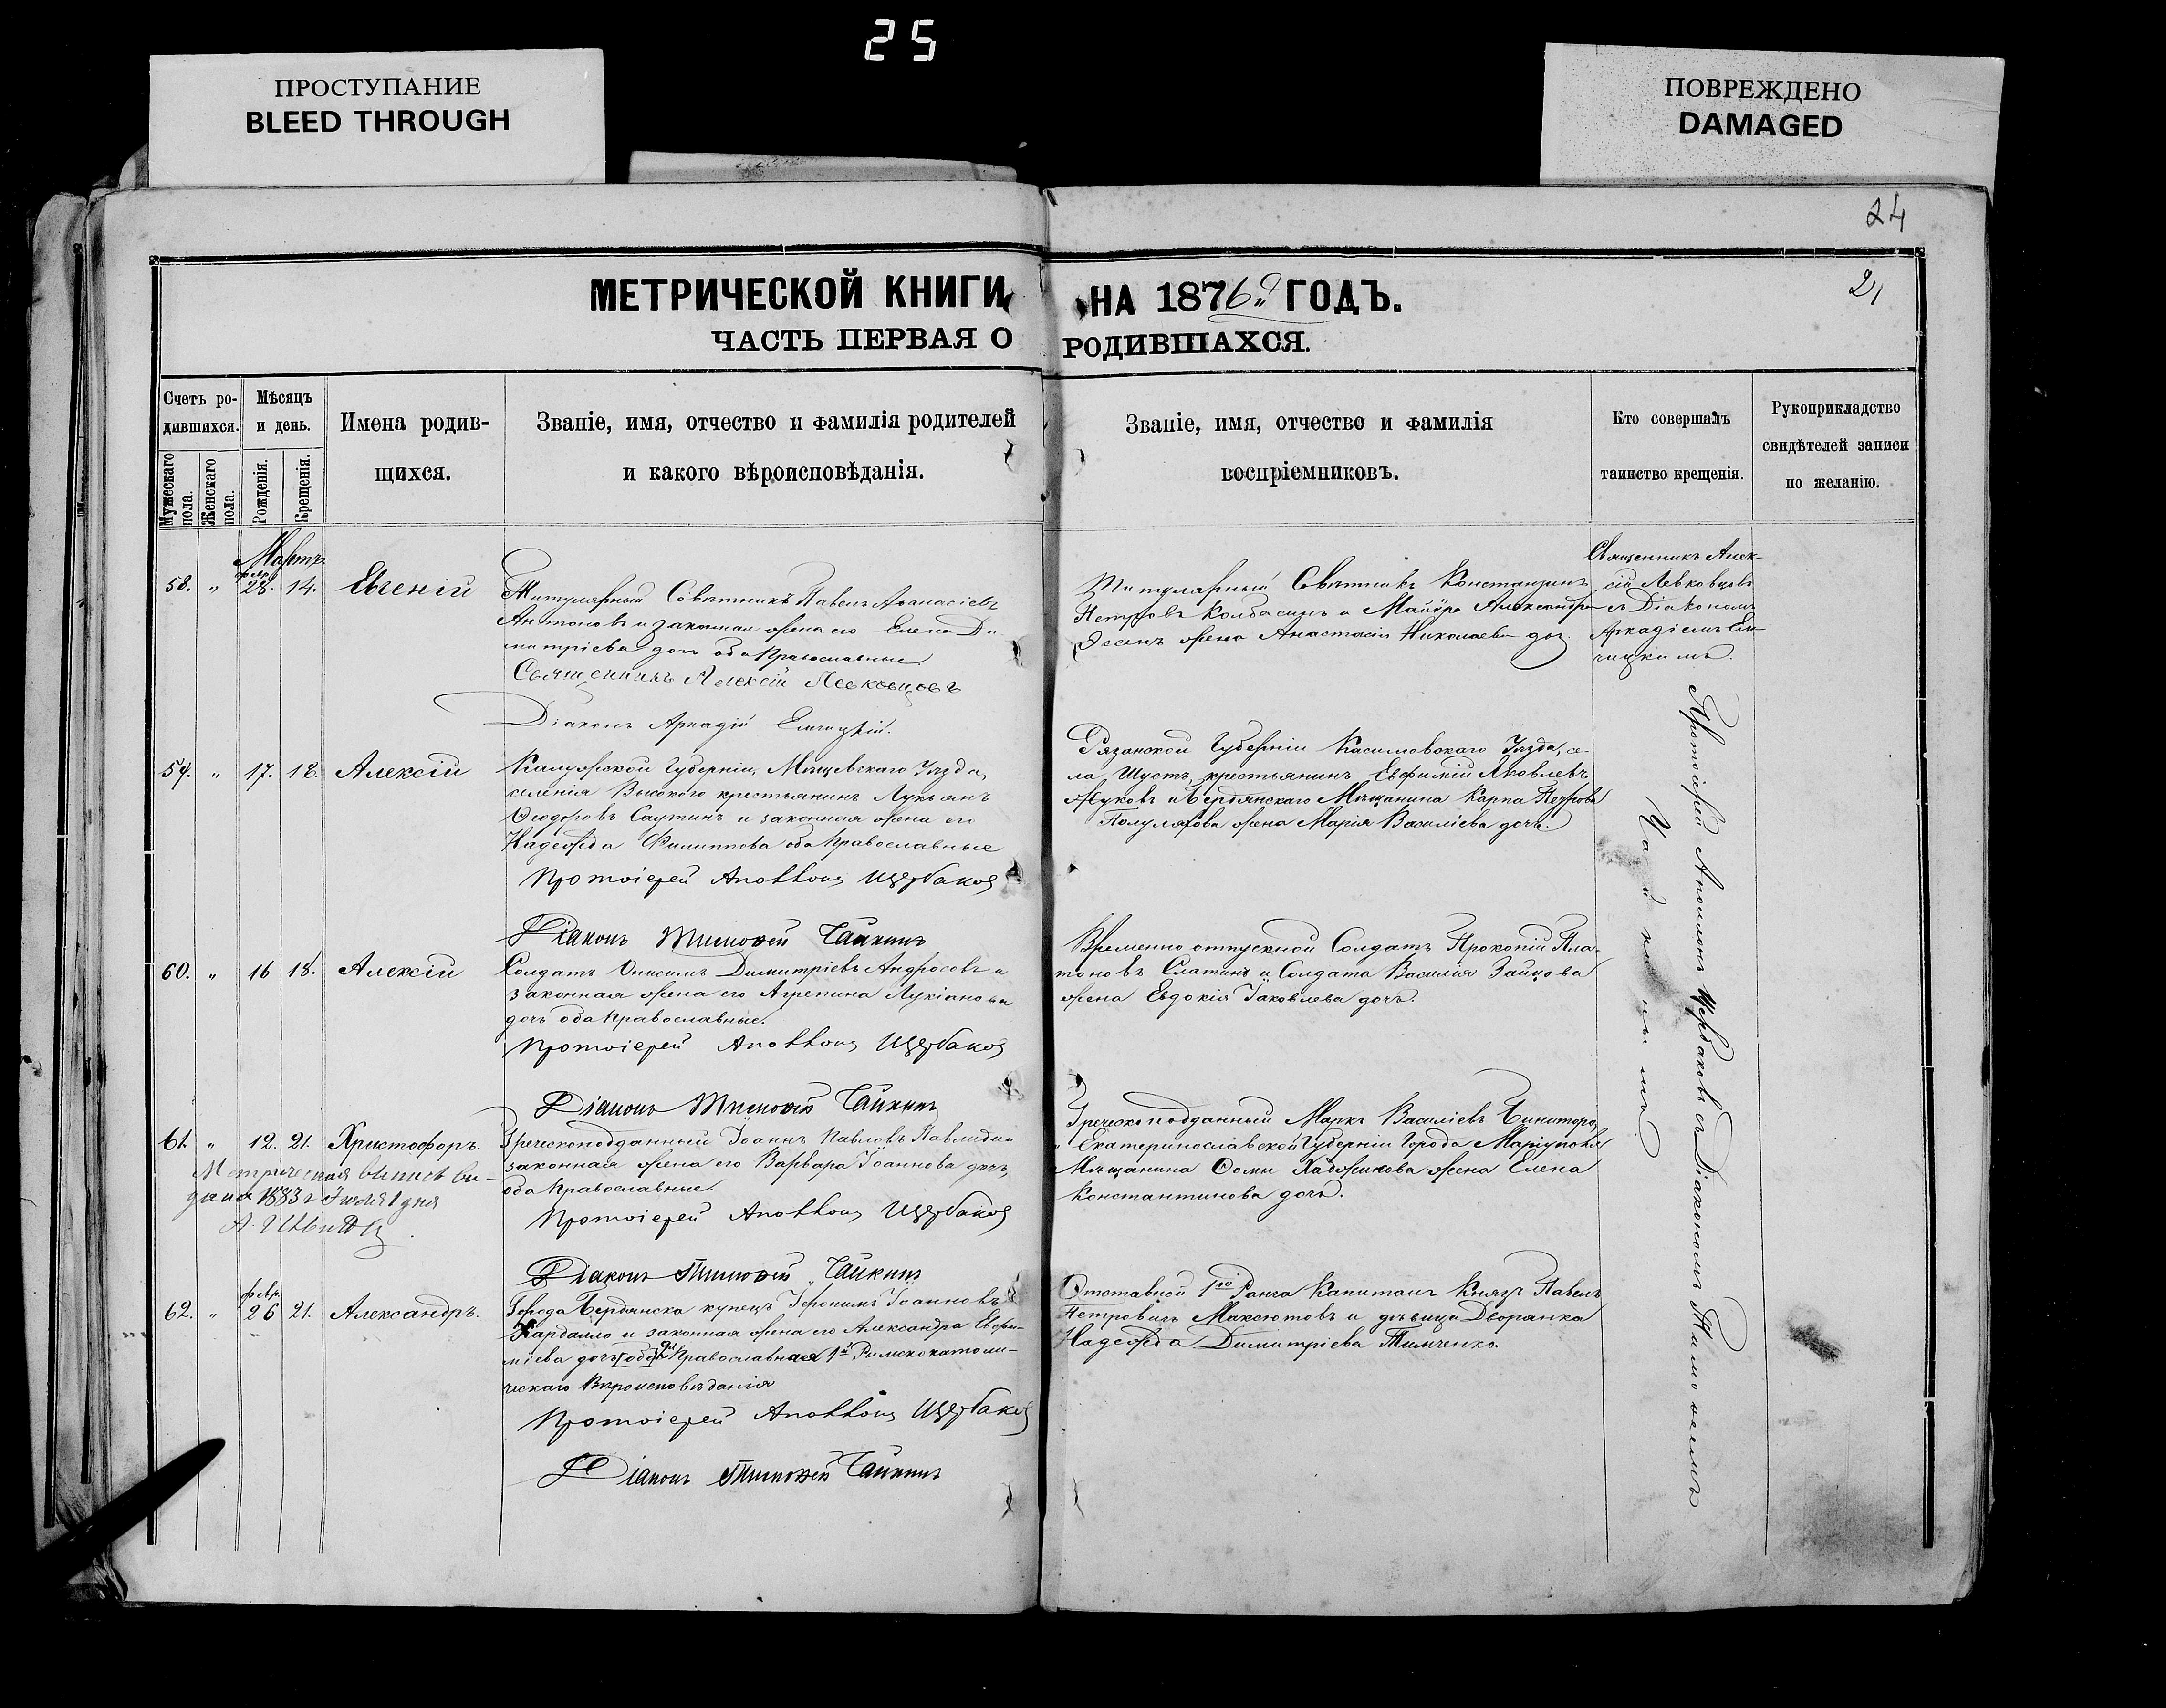 25
ПРОСТУПАНИЕ
BLEED THROUGH
ПОВРЕЖДЕНО
DAMAGED
24
21
МЕТРИЧЕСКОЙ КНИГИ НА 1876й ГОДЪ.
ЧАСТЬ ПЕРВАЯ О РОДИВШАХСЯ.
Счетъ ро-
дившихся.
Мужескаго пола.
Женскаго пола.
Мѣсяцъ
и день.
Рожденія.
Крещенія.
Имена родив-
щихся.
Званіе, имя, отчество и фамилія родителей
и какого вѣроисповѣданія.
Званіе, имя, отчество и фамилія
воспріемниковъ.
Кто совершалъ
таинство крещенія.
Рукоприкладство
свидѣтелей записи
по желанію.
Мартъ
58. " 28. 14. Евгеній
Титулярный Совѣтникъ Павелъ Аѳанасіевъ
Антоновъ и законная жена его Елена Ди-
митріева дочь оба Православные
Священникъ Алексій Левковцовъ
Діаконъ Аркадій
Титулярный Совѣтникъ Константинъ
Петровъ Колбасинъ и Маіора Александра
Эссенъ жена Анастасія Николаева доч.
Священникъ Алек-
сій Левковцовъ
съ Діакономъ
Аркадіемъ Ел-
чицкимъ.
59. " 17. 18. Алексій
Калужской Губерніи, Мещевскаго Уѣзда,
селенія Высокого крестьянинъ Лукьянъ
Ѳеодоровъ Саутинъ и законная жена его
Надежда Филиппова оба Православные
Протоіерей Аполлонъ Щербаковъ
Діаконъ Тимоѳей Чайкинъ
Рязанской Губерніи Касимовскаго Уѣзда, се-
ла Шость, крестьянинъ Евфимій Яковлевъ
Жуковъ и Бердянскаго Мѣщанина Карпа Петрова
Полуляхова жена Марія Василіева дочь.
60. " 16 18. Алексій
Солдатъ Онисимъ Димитріевъ Андросовъ и
законная жена его Агрепина Лукіанова
дочь оба Православные.
Протоіерей Аполлонъ Щербаковъ
Діаконъ Тимоѳей Чайкинъ
Временно отпускной Солдатъ Прокопій Пла-
тоновъ Слатинъ и Солдата Василія Зайцова
жена Евдокія Іаковлева дочь.
61. " 12. 21. Христофоръ.
Метрическая выпись вы-
дана 1883 г Іюля 1 дня
Греческоподданный Іоаннъ Павловъ Павлиди и
законная жена его Варвара Іоаннова дочь,
оба Православные.
Протоіерей Аполлонъ Щербаковъ
Діаконъ Тимоѳей Чайкинъ
Греческоподданный Маркъ Василіевъ
и Екатеринославской Губерніи Города Маріуполя
Мѣщанина Ѳомы Хаджинова жена Елена
Константинова дочь.
февр.
62. " 26 21. Александръ.
Города Бердянска купецъ Іеронимъ Іоанновъ
Кардалло и законная жена его Александра Евфи-
міева дочь [оба] 2я Православная 1й Римскокатоли-
ческаго Вѣроисповѣданія
Протоіерей Аполлонъ Щербаковъ
Діаконъ Тимоѳей Чайкинъ
Отставной 1го Ранга Капитанъ Князь Павелъ
Петровичъ Максютовъ и дѣвица Дворянка
Надежда Димитріева Тимченко.
Протоіерей Аполлонъ Щербаковъ съ Діакономъ Тимоѳеемъ
Чайкинымъ